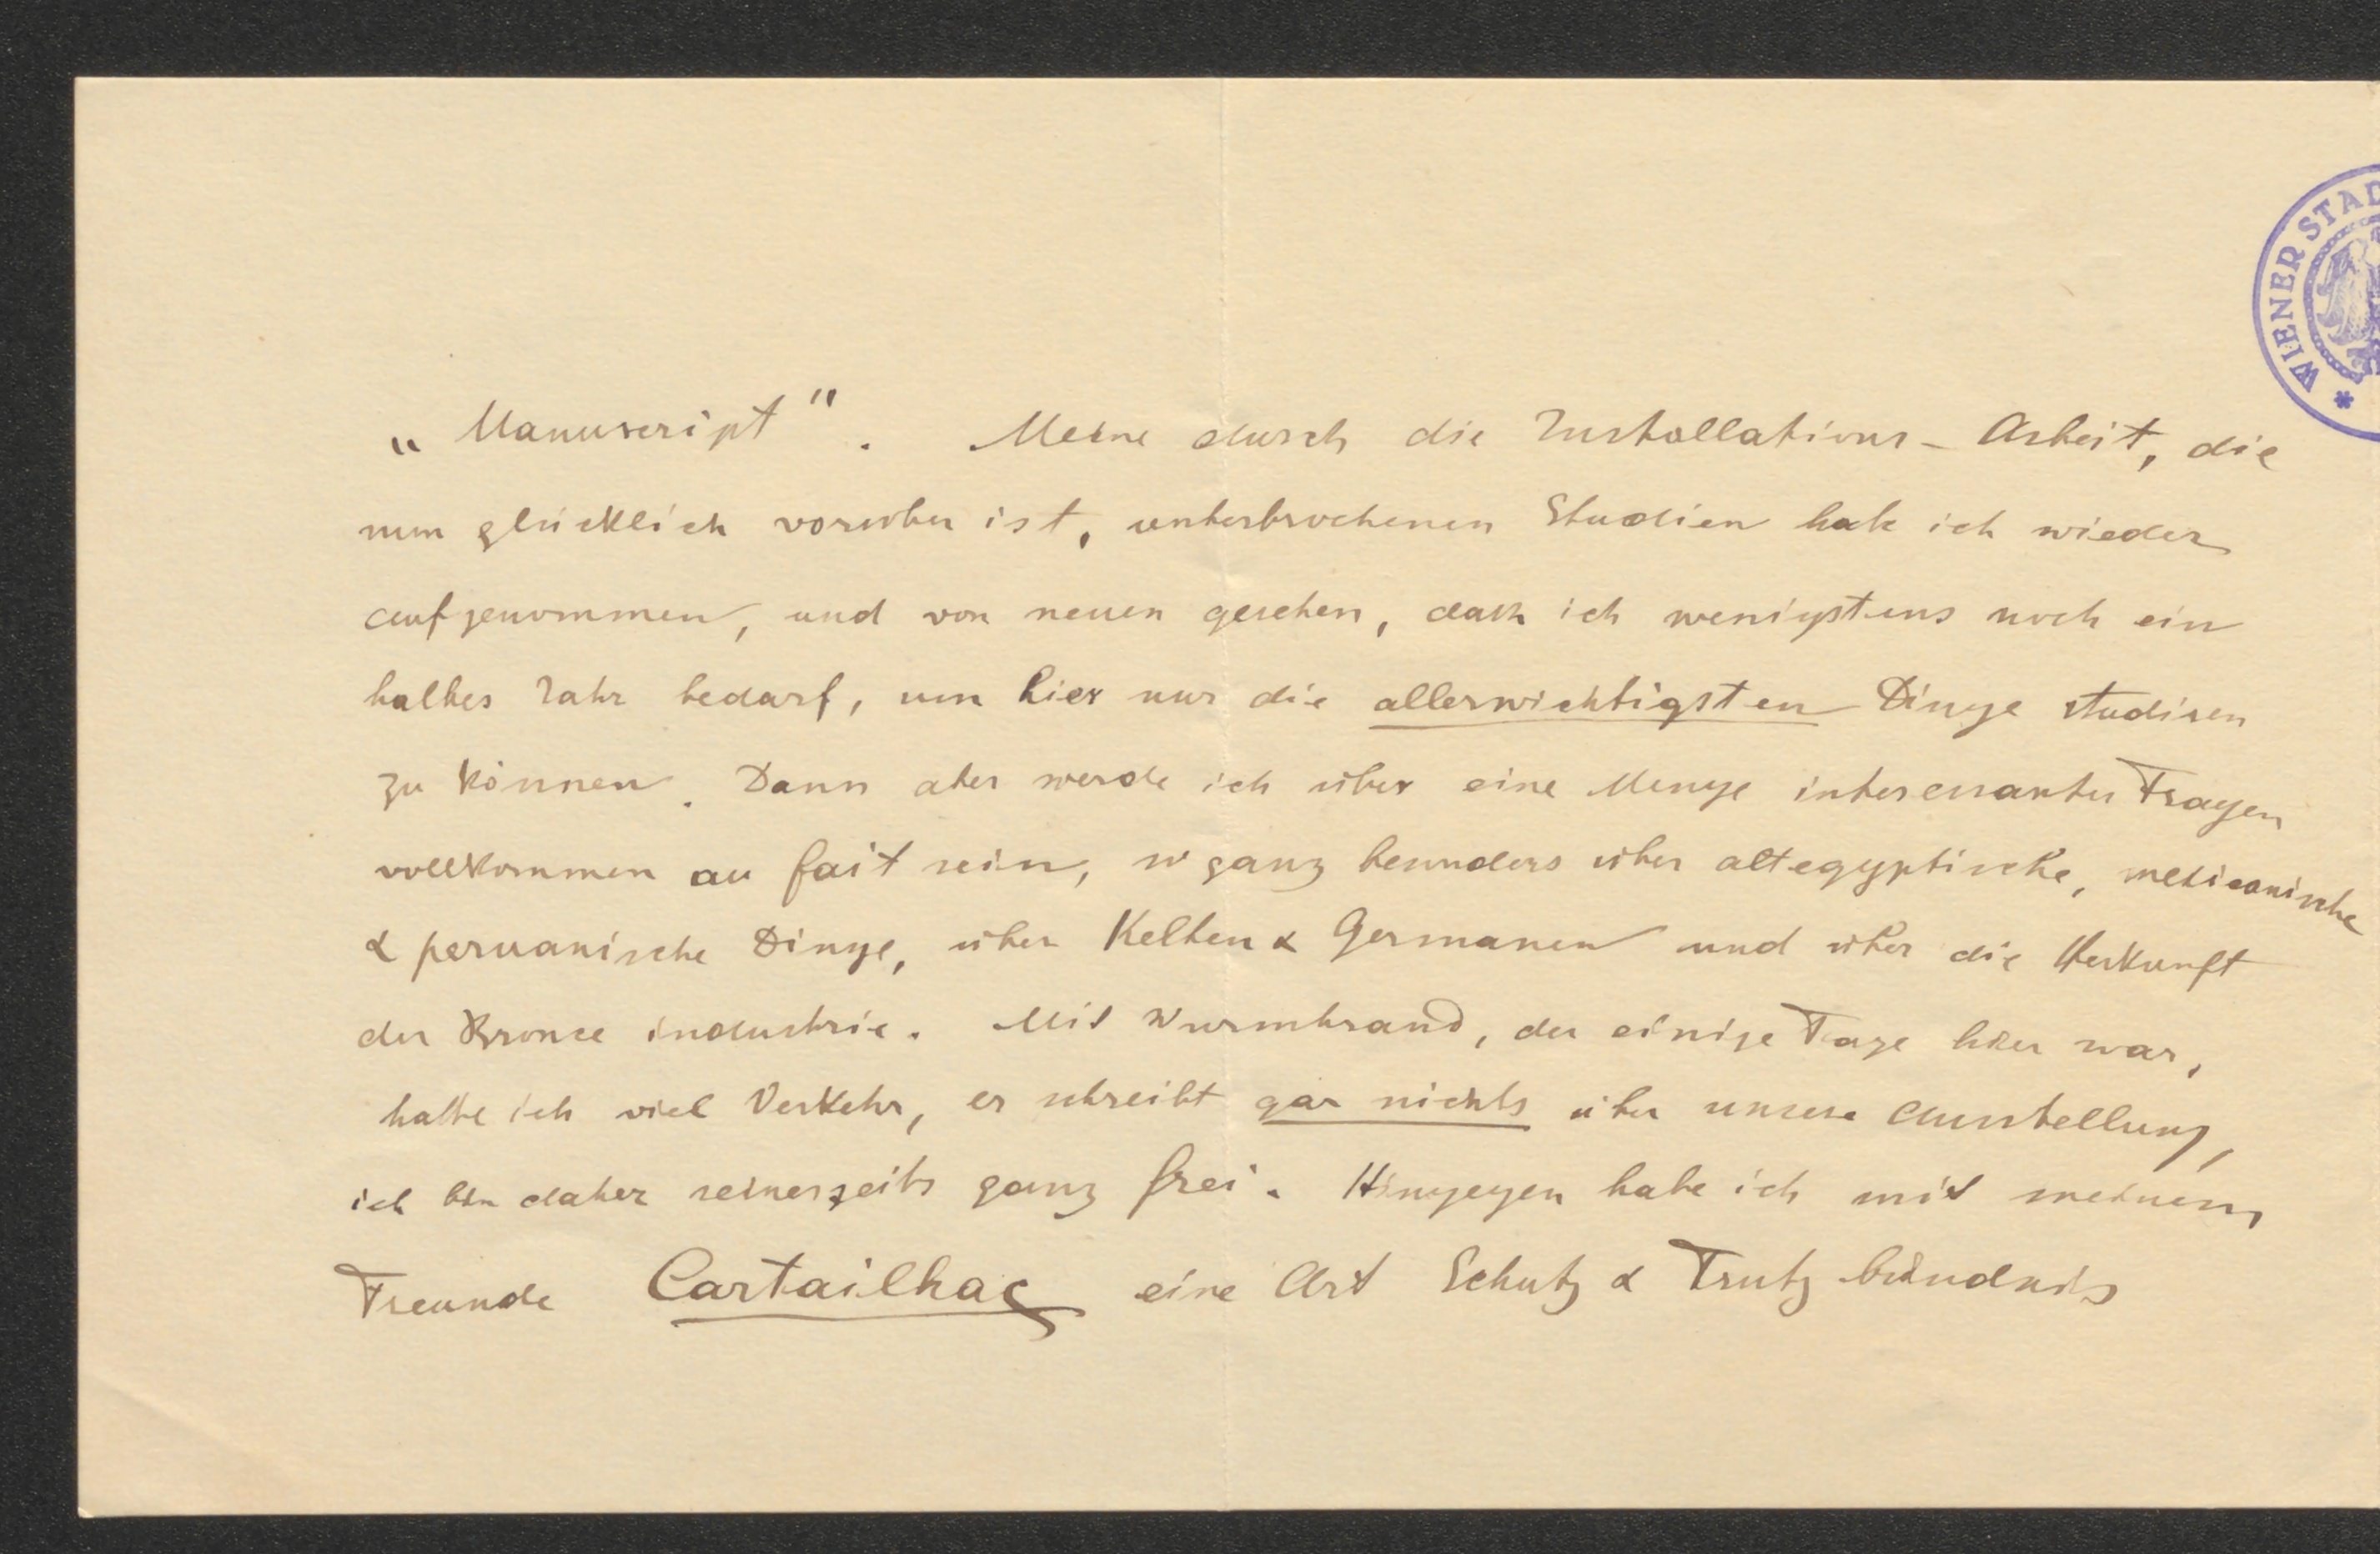 WIENER STAD
„Manuscript". Meine durch die Installations-Arbeit, die
nun glücklich vorüber ist, unterbrochenen Studien hab ich wieder
aufgenommen, und von neuen gesehen, dass ich wenigstens noch ein
halbes Jahr bedarf, um hier nur die allerwichtigsten Dinge studiren
zu können. Dann aber werde ich über eine Menge interessanter Fragen
vollkommen au fait sein, so ganz besonders über altegyptische, mexicanische
& peruanische Dinge, über Kelten & Germanen und über die Herkunft
der Bronce industrie. Mit Wurmbrand, der einige Tage hier war,
hatte ich viel Verkehr, er schreibt gar nichts über unsere Ausstellung,
ich bin daher seinerseits ganz frei. Hingegen habe ich mit meinem
Freunde Cartailhac eine Art Schutz & Trutz bündnis